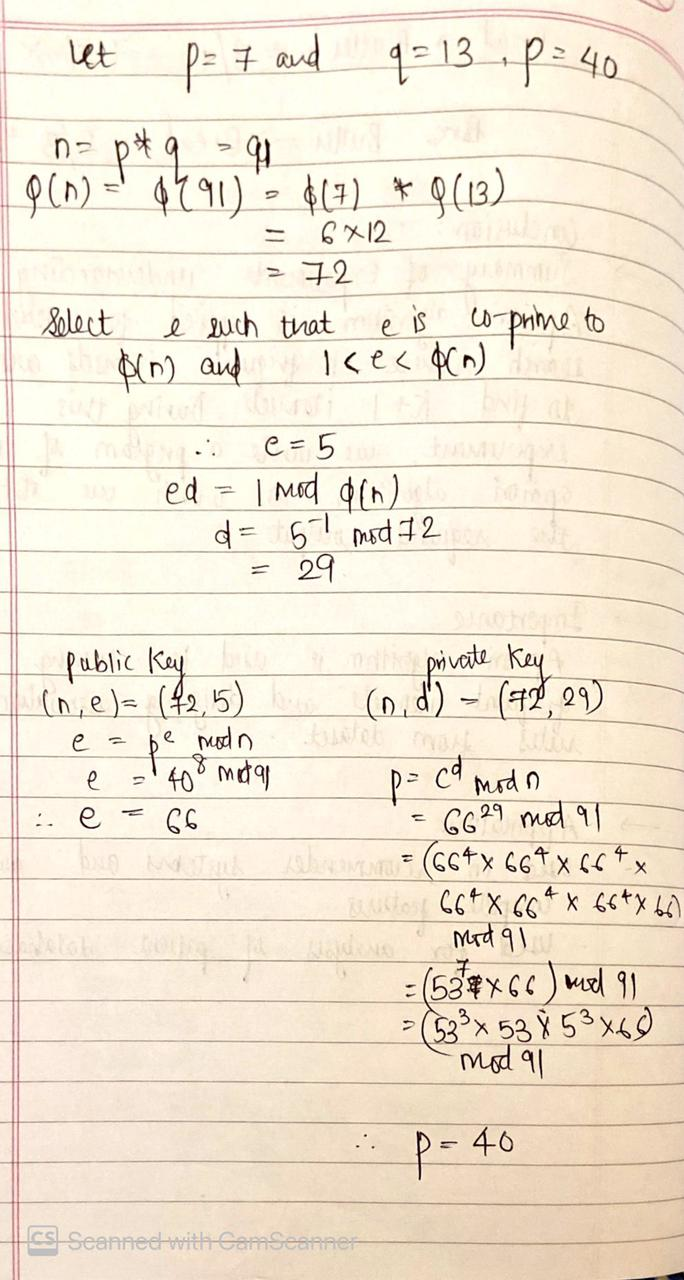 Let p = 7 and q = 13 , p = 40
n = p * q = 91
φ(n) = φ(91) = φ(7) * φ(13)
= 6 × 12
= 72
Select e such that e is co-prime to
φ(n) and 1 < e < φ(n)
∴ e = 5
ed = 1 mod φ(n)
d = 5⁻¹ mod 72
= 29
public key
(n, e) = (72, 5)
e = pᵉ mod n
e = 40⁸ mod 91
∴ e = 66
private key
(n, d) = (72, 29)
p = cᵈ mod n
= 66²⁹ mod 91
= (66⁴ × 66⁴ × 66⁴ ×
66⁴ × 66⁴ × 66⁴ × 66)
mod 91
= (53⁷ × 66) mod 91
= (53³ × 53 × 5³ × 66)
mod 91
∴ p = 40
CS Scanned with CamScanner